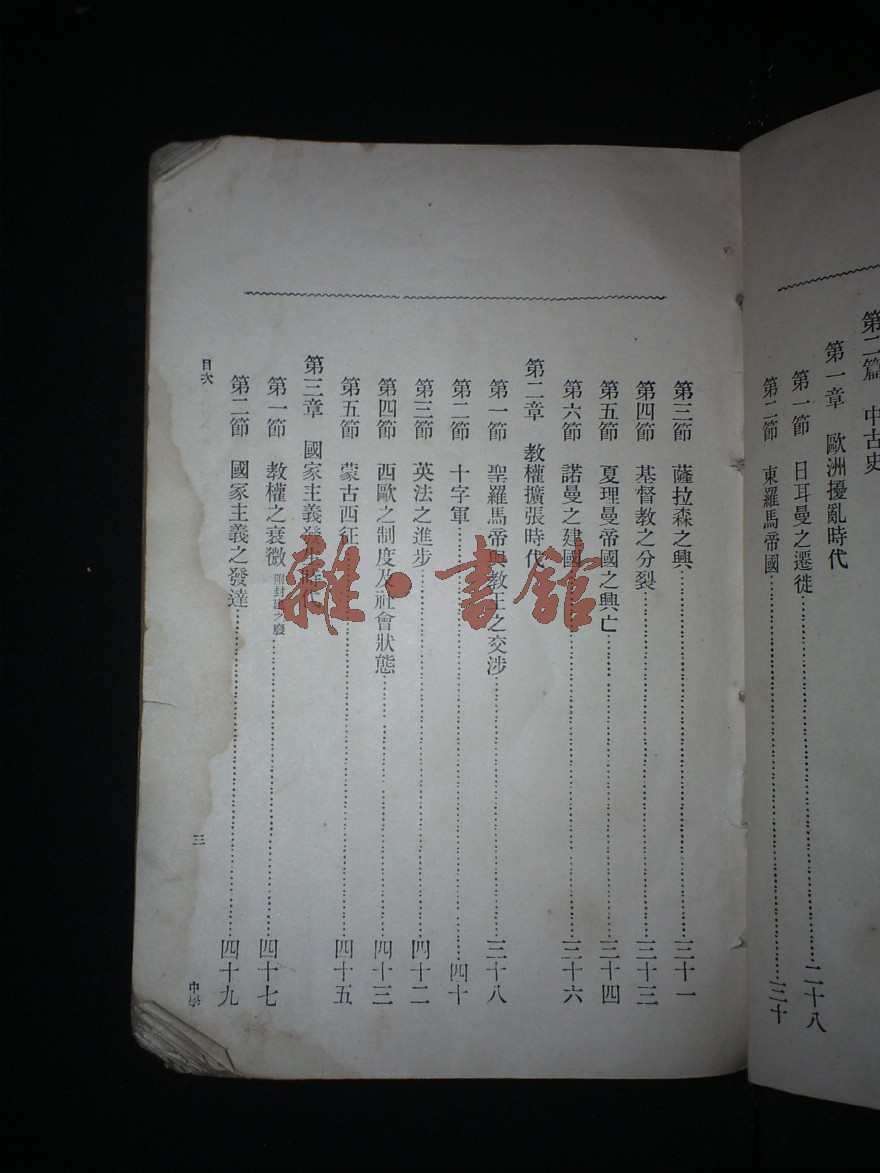 第二篇 中古史
第一章 歐洲擾亂時代
第一節 日耳曼之遷徙 二十八
第二節 東羅馬帝國 三十
第三節 薩拉森之興 三十一
第四節 基督教之分裂 三十三
第五節 夏理曼帝國之興亡 三十四
第六節 諾曼之建國 三十六
第二章 教權擴張時代
第一節 聖羅馬帝與教王之交涉 三十八
第二節 十字軍 四十
第三節 英法之進步 四十二
第四節 西歐之制度及社會狀態 四十三
第五節 蒙古西征 四十五
第三章 國家主義發生時代
第一節 教權之衰微 附封建之廢 四十七
第二節 國家主義之發達 四十九
目次 三 中學
雜·書館